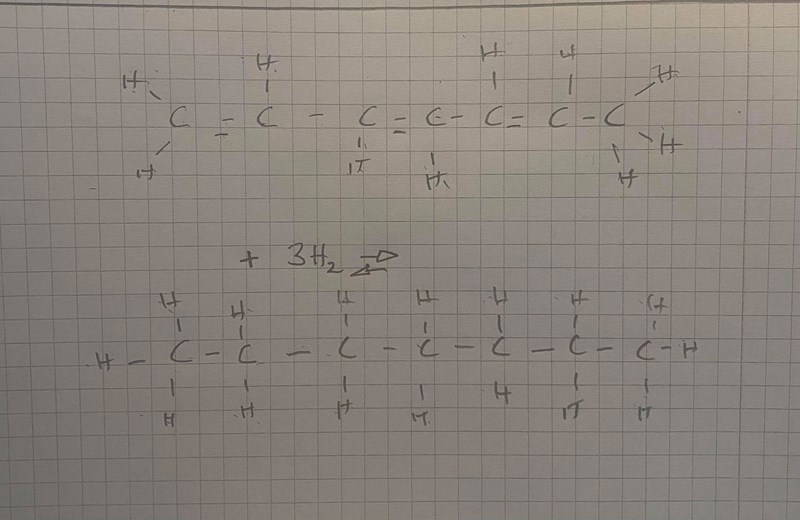 H H H H H
C = C - C = C - C = C - C
H H H H H
+ 3H₂ ⇌
H H H H H H H
H - C - C - C - C - C - C - C - H
H H H H H H H